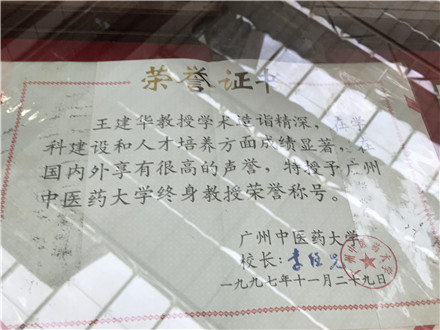 荣誉证书
王建华教授学术造诣精深，在学
科建设和人才培养方面成绩显著，在
国内外享有很高的声誉，特授予广州
中医药大学终身教授荣誉称号。
广州中医药大学
校长：
一九九七年十一月二十九日